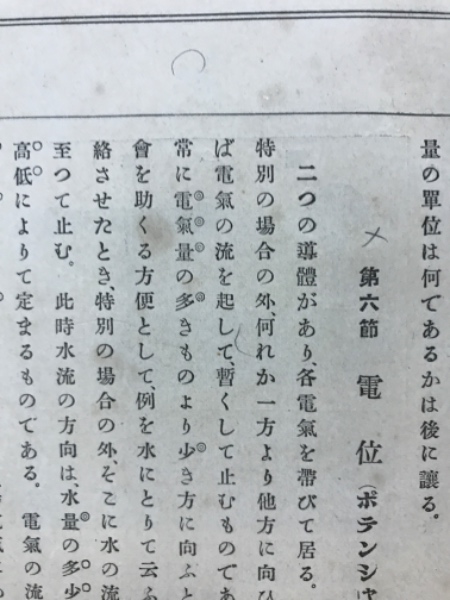 量の單位は何であるかは後に讓る。
第六節 電位(ポテンシャ
二つの導體があり、各電氣を帶びて居る。
特別の場合の外、何れか一方より他方に向ひ
ば電氣の流を起して、暫くして止むものであ
常に電氣量の多きものより少き方に向ふと
會を助くる方便として、例を水にとりて云ふ
絡させたとき、特別の場合の外、そこに水の流
至つて止む。此時水流の方向は、水量の多少
高低によりて定まるものである。電氣の流